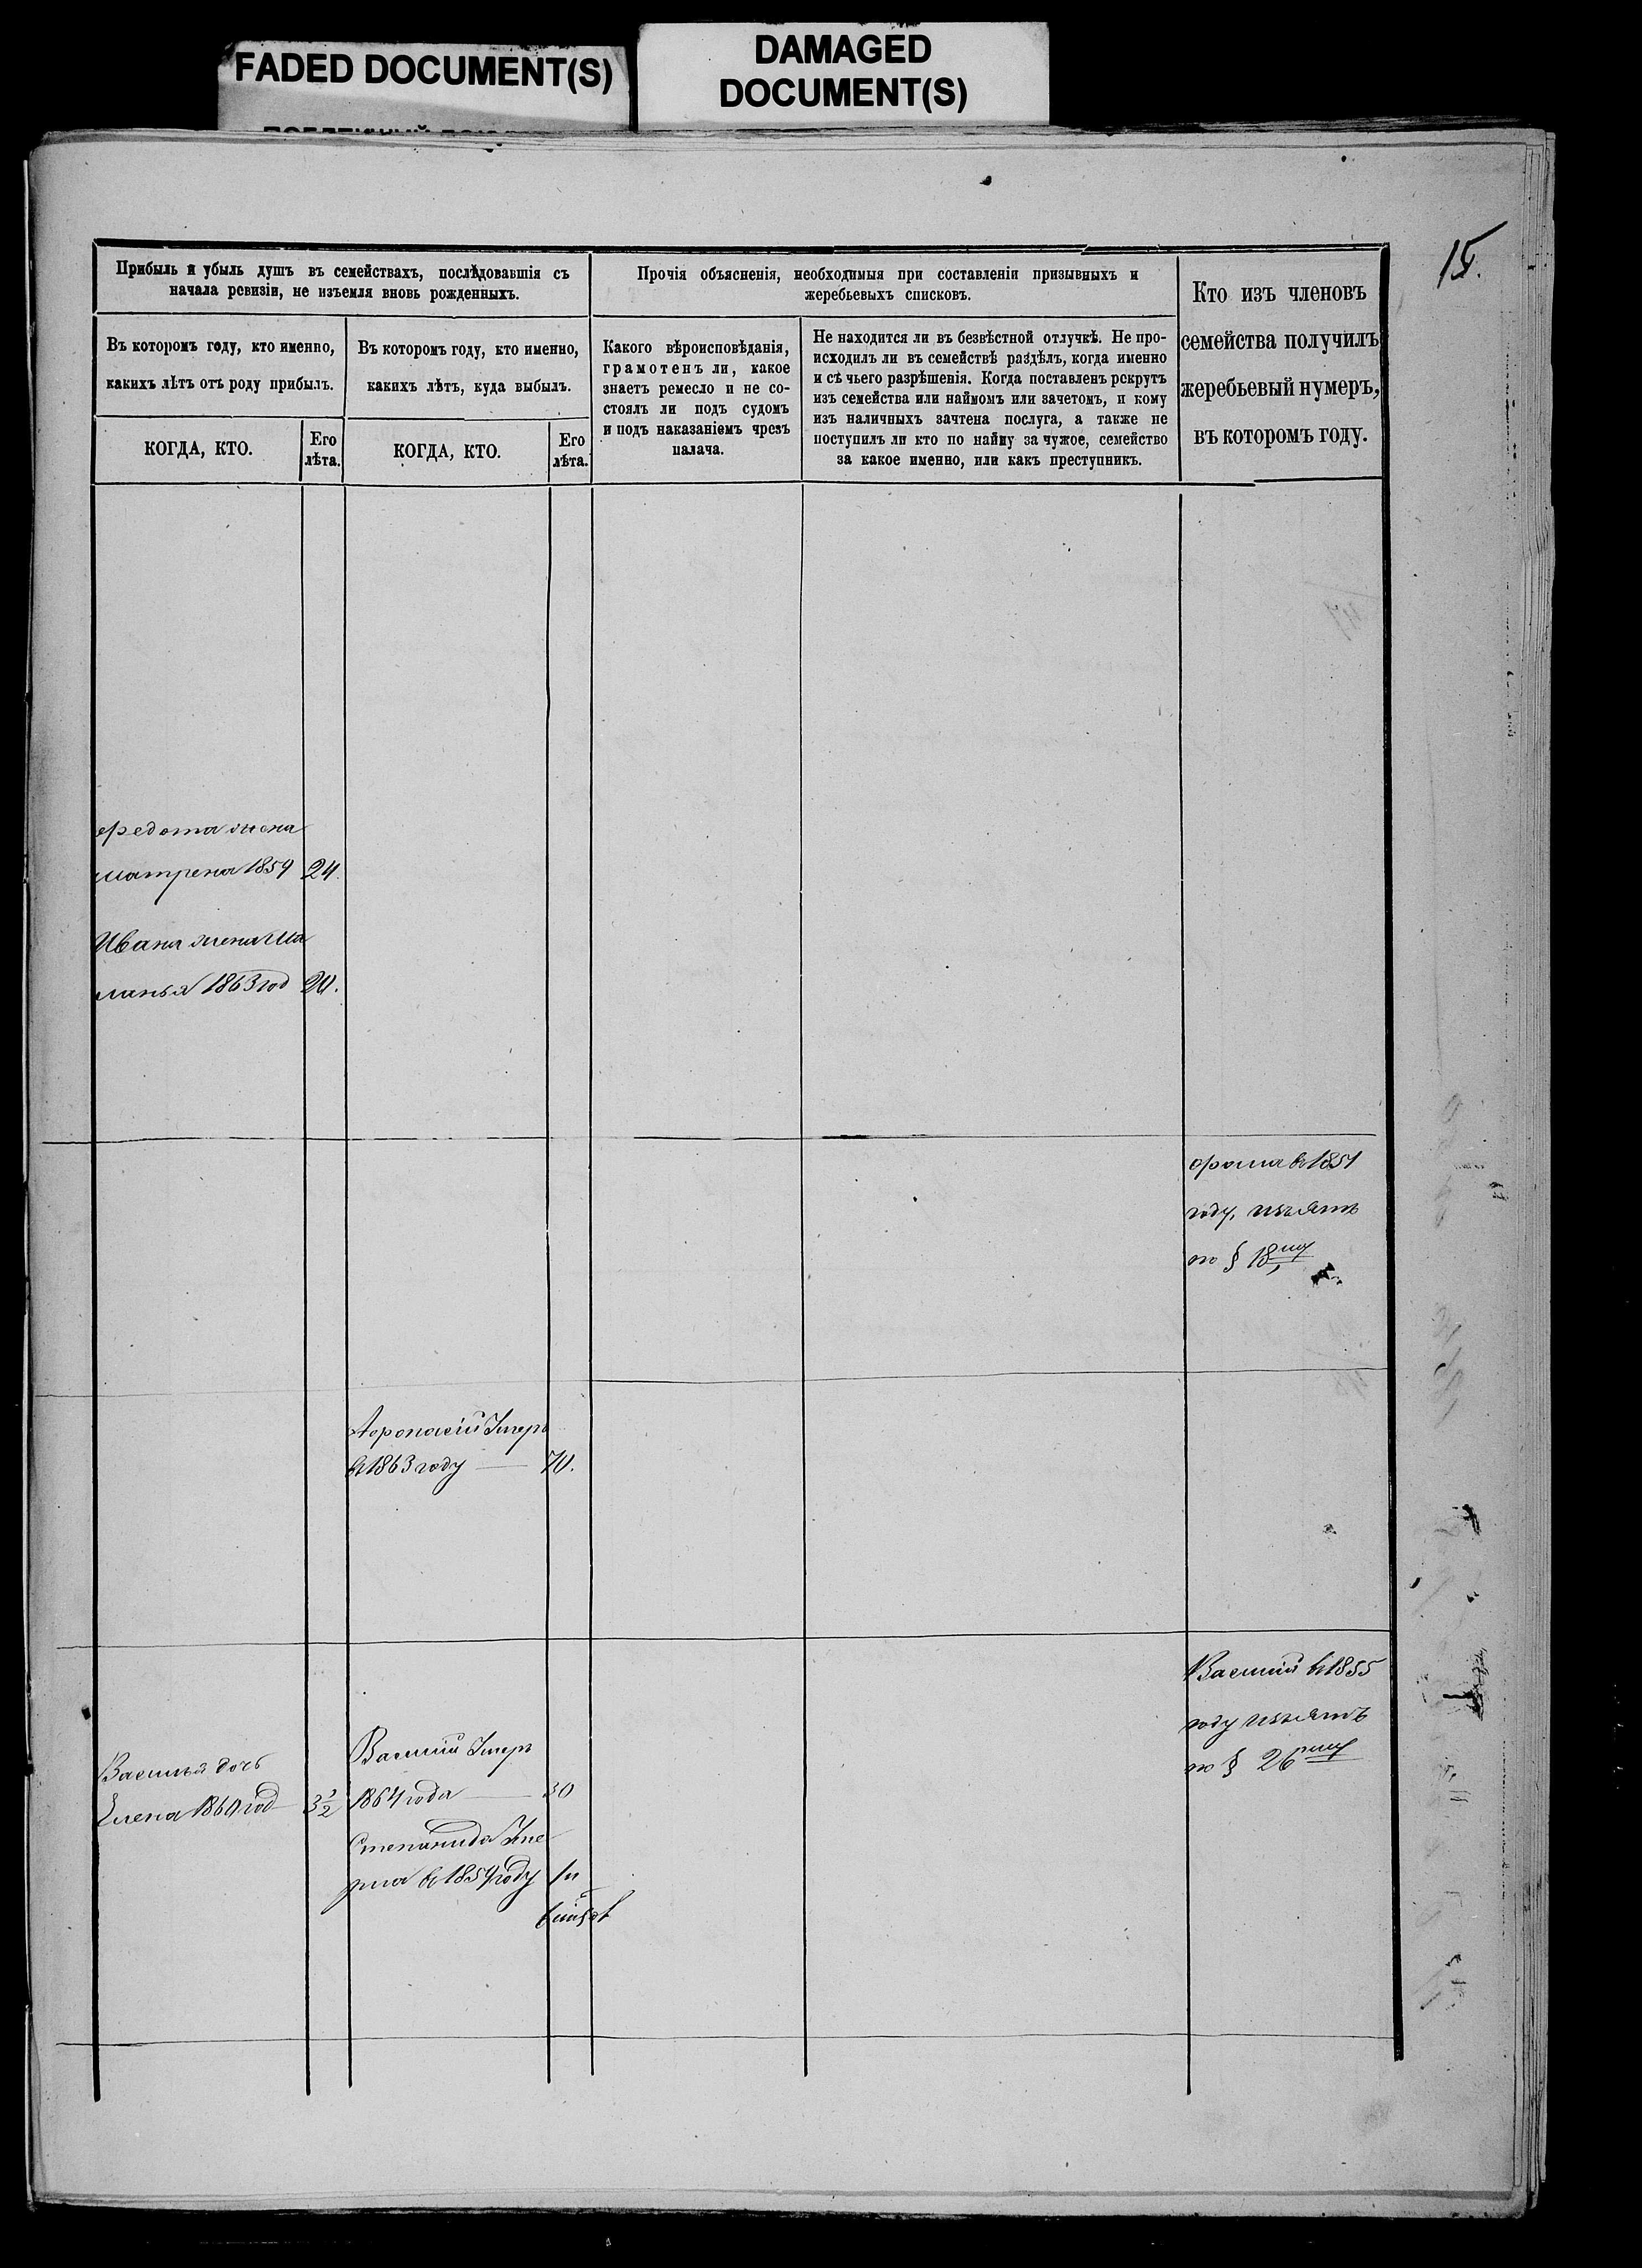 FADED DOCUMENT(S)
DAMAGED
DOCUMENT(S)
15.
Прибыль и убыль душъ въ семействахъ, послѣдовавшія съ
начала ревизіи, не изъемля вновь рожденныхъ.
Прочія объясненія, необходимыя при составленіи призывныхъ и
жеребьевыхъ списковъ.
Кто изъ членовъ
семейства получилъ
жеребьевый нумеръ,
въ которомъ году.
Въ которомъ году, кто именно,
какихъ лѣтъ отъ роду прибылъ.
Въ которомъ году, кто именно,
какихъ лѣтъ, куда выбылъ.
Какого вѣроисповѣданія,
грамотенъ ли, какое
знаетъ ремесло и не со-
стоялъ ли подъ судомъ
и подъ наказаніемъ чрезъ
палача.
Не находится ли въ безвѣстной отлучкѣ. Не про-
исходилъ ли въ семействѣ раздѣлъ, когда именно
и съ чьего разрѣшенія. Когда поставленъ рекрутъ
изъ семейства или наймомъ или зачетомъ, и кому
изъ наличныхъ зачтена послуга, а также не
поступилъ ли кто по найму за чужое, семейство
за какое именно, или какъ преступникъ.
КОГДА, КТО.
Его
лѣта.
КОГДА, КТО.
Его
лѣта.
Федота жена
Матрена 1859 24.
Ивана жена Ма
ланья 1863 год 20.
Фома въ 1851
году, изъятъ
по § 18му
Афонасій Умеръ
въ 1863 году — 70.
Василій въ 1855
году изъятъ
по § 26му
Василья дочь
Елена 1860 год 3½
Василій Умеръ
1864 года — 30
Степанида Уме
рла въ 1859 году